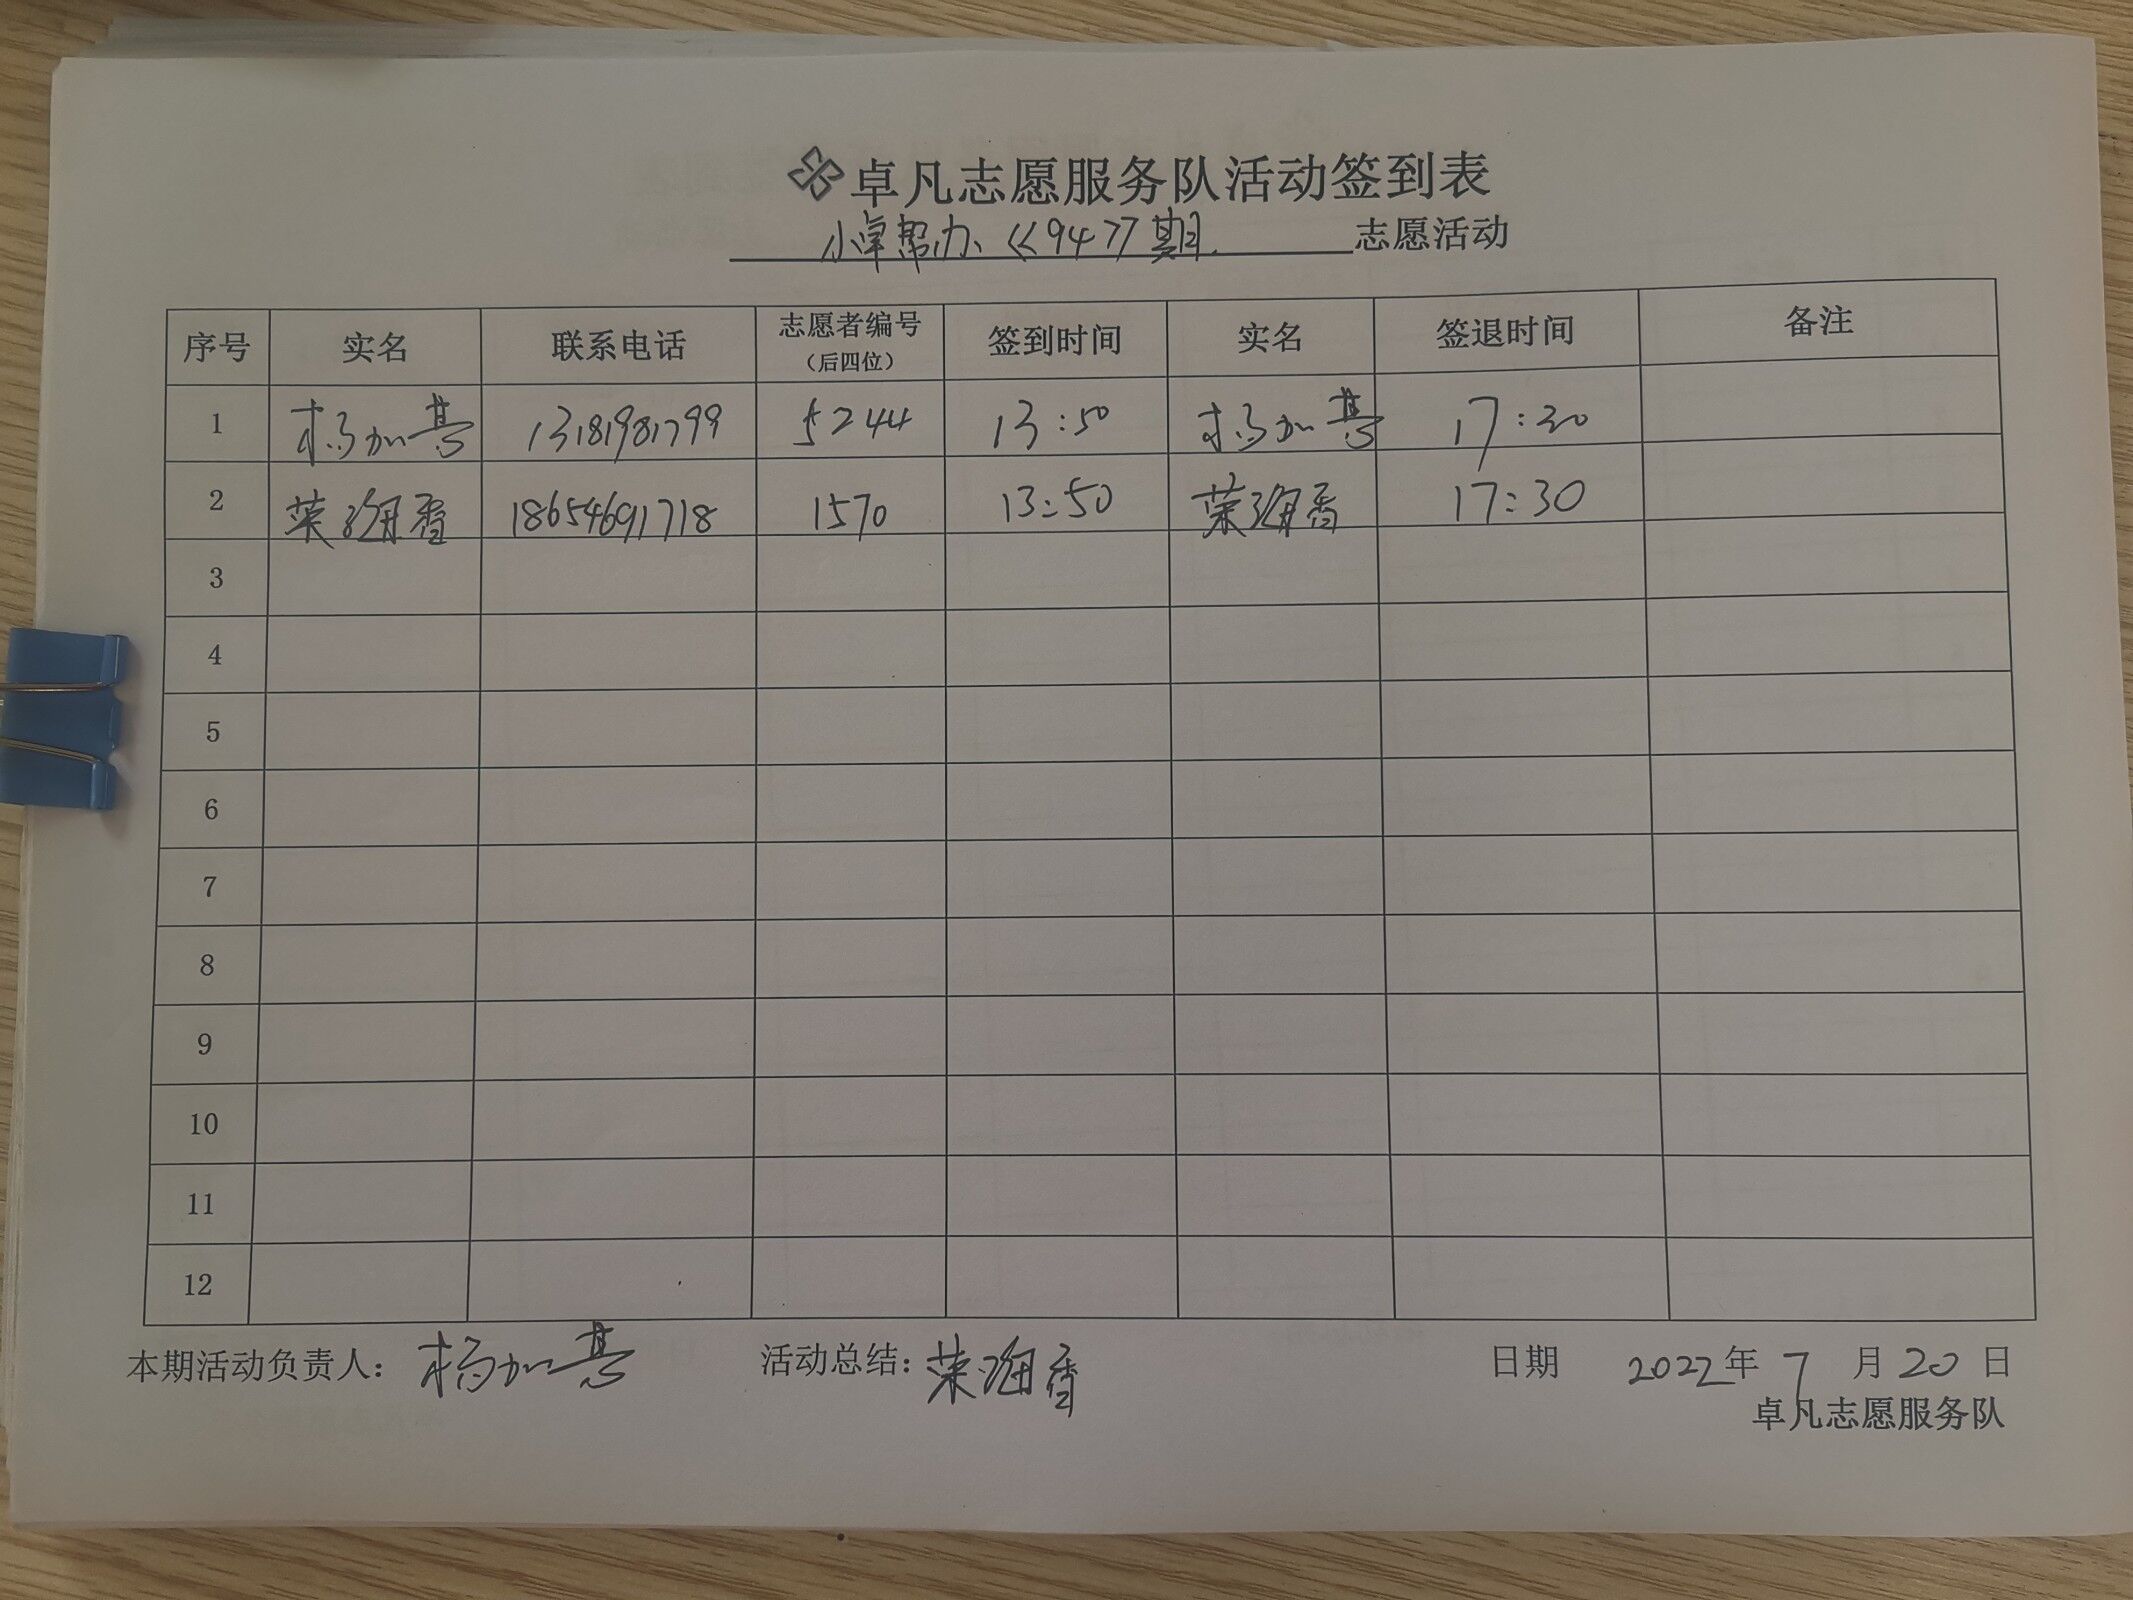 卓凡志愿服务队活动签到表
小卓帮办《94》期 志愿活动
序号 实名 联系电话 志愿者编号（后四位） 签到时间 实名 签退时间 备注
1 杨加 13181981799 5244 13:50 杨加 17:30
2 荣海香 18654691718 1570 13:50 荣海香 17:30
3
4
5
6
7
8
9
10
11
12
本期活动负责人：杨加 活动总结：荣海香 日期 2022年7月20日
卓凡志愿服务队